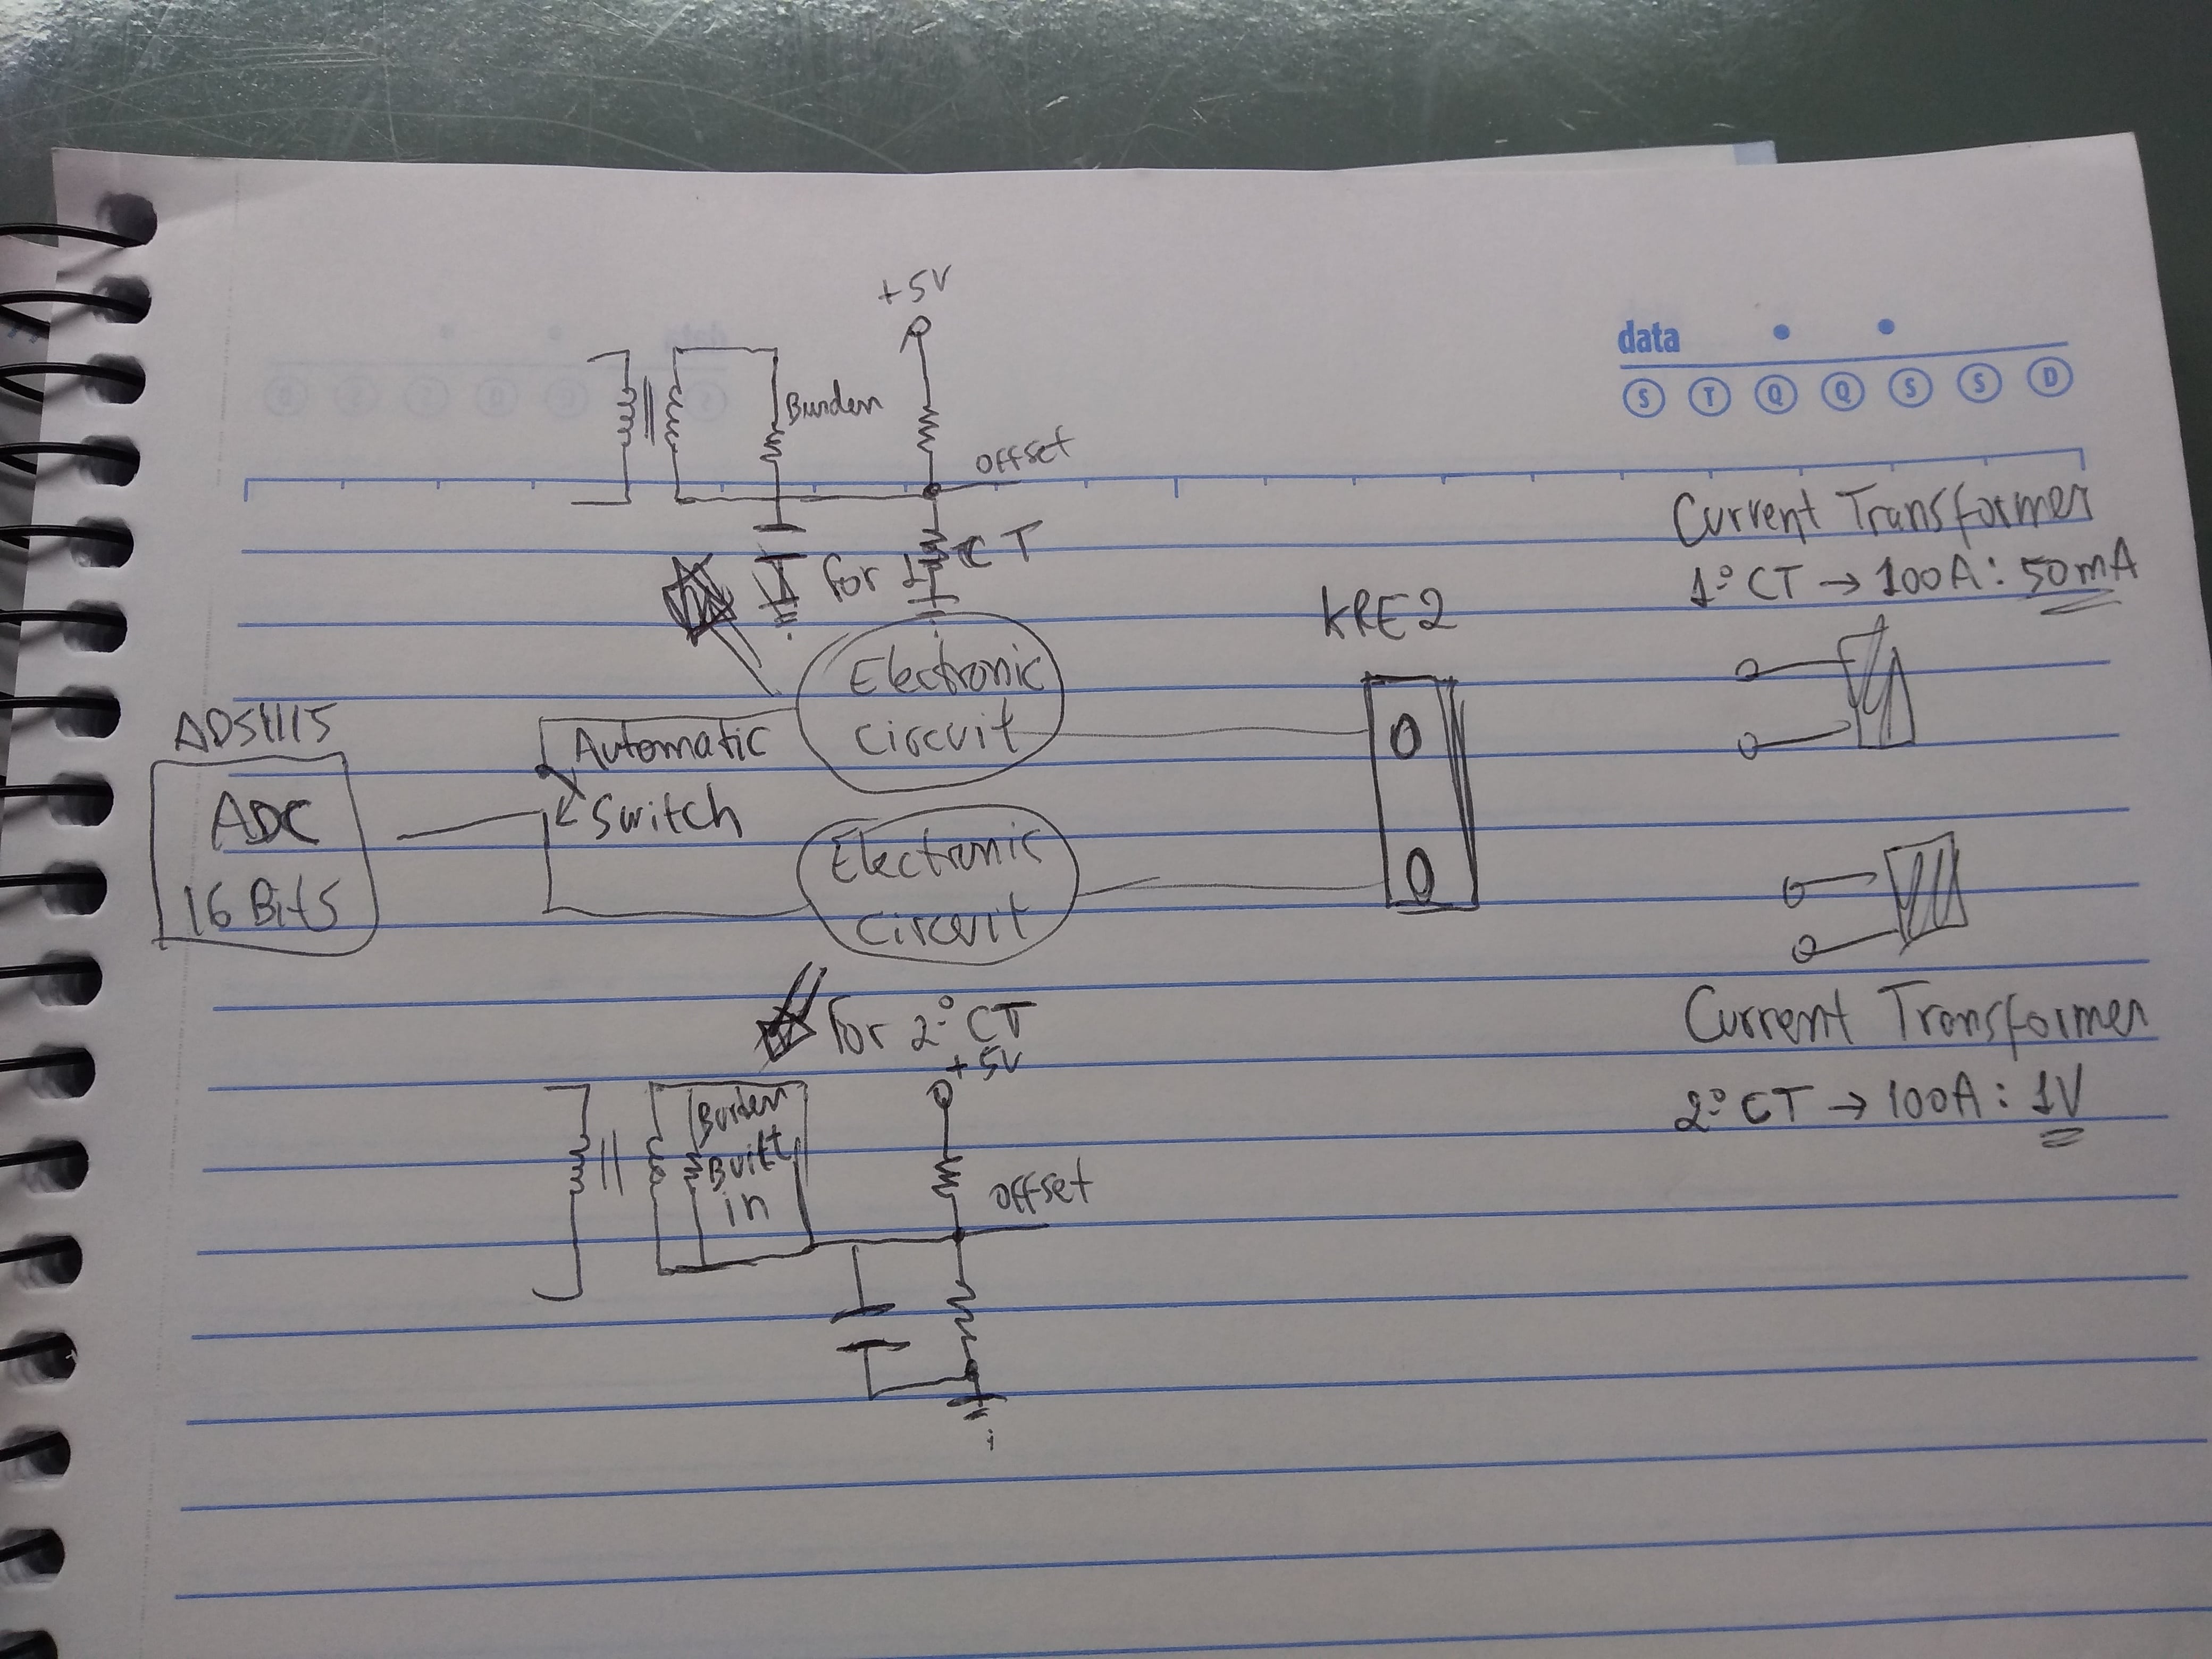 +5V
data
S T Q Q S S D
Burden
offset
Current Transformer
1º CT → 100A: 50mA
for 1º CT
KRE2
Electronic
circuit
ADS1115
Automatic
Switch
ADC
16 Bits
Electronic
circuit
for 2º CT
Current Transformer
2º CT → 100A: 1V
+5V
Burden
Built
in
offset